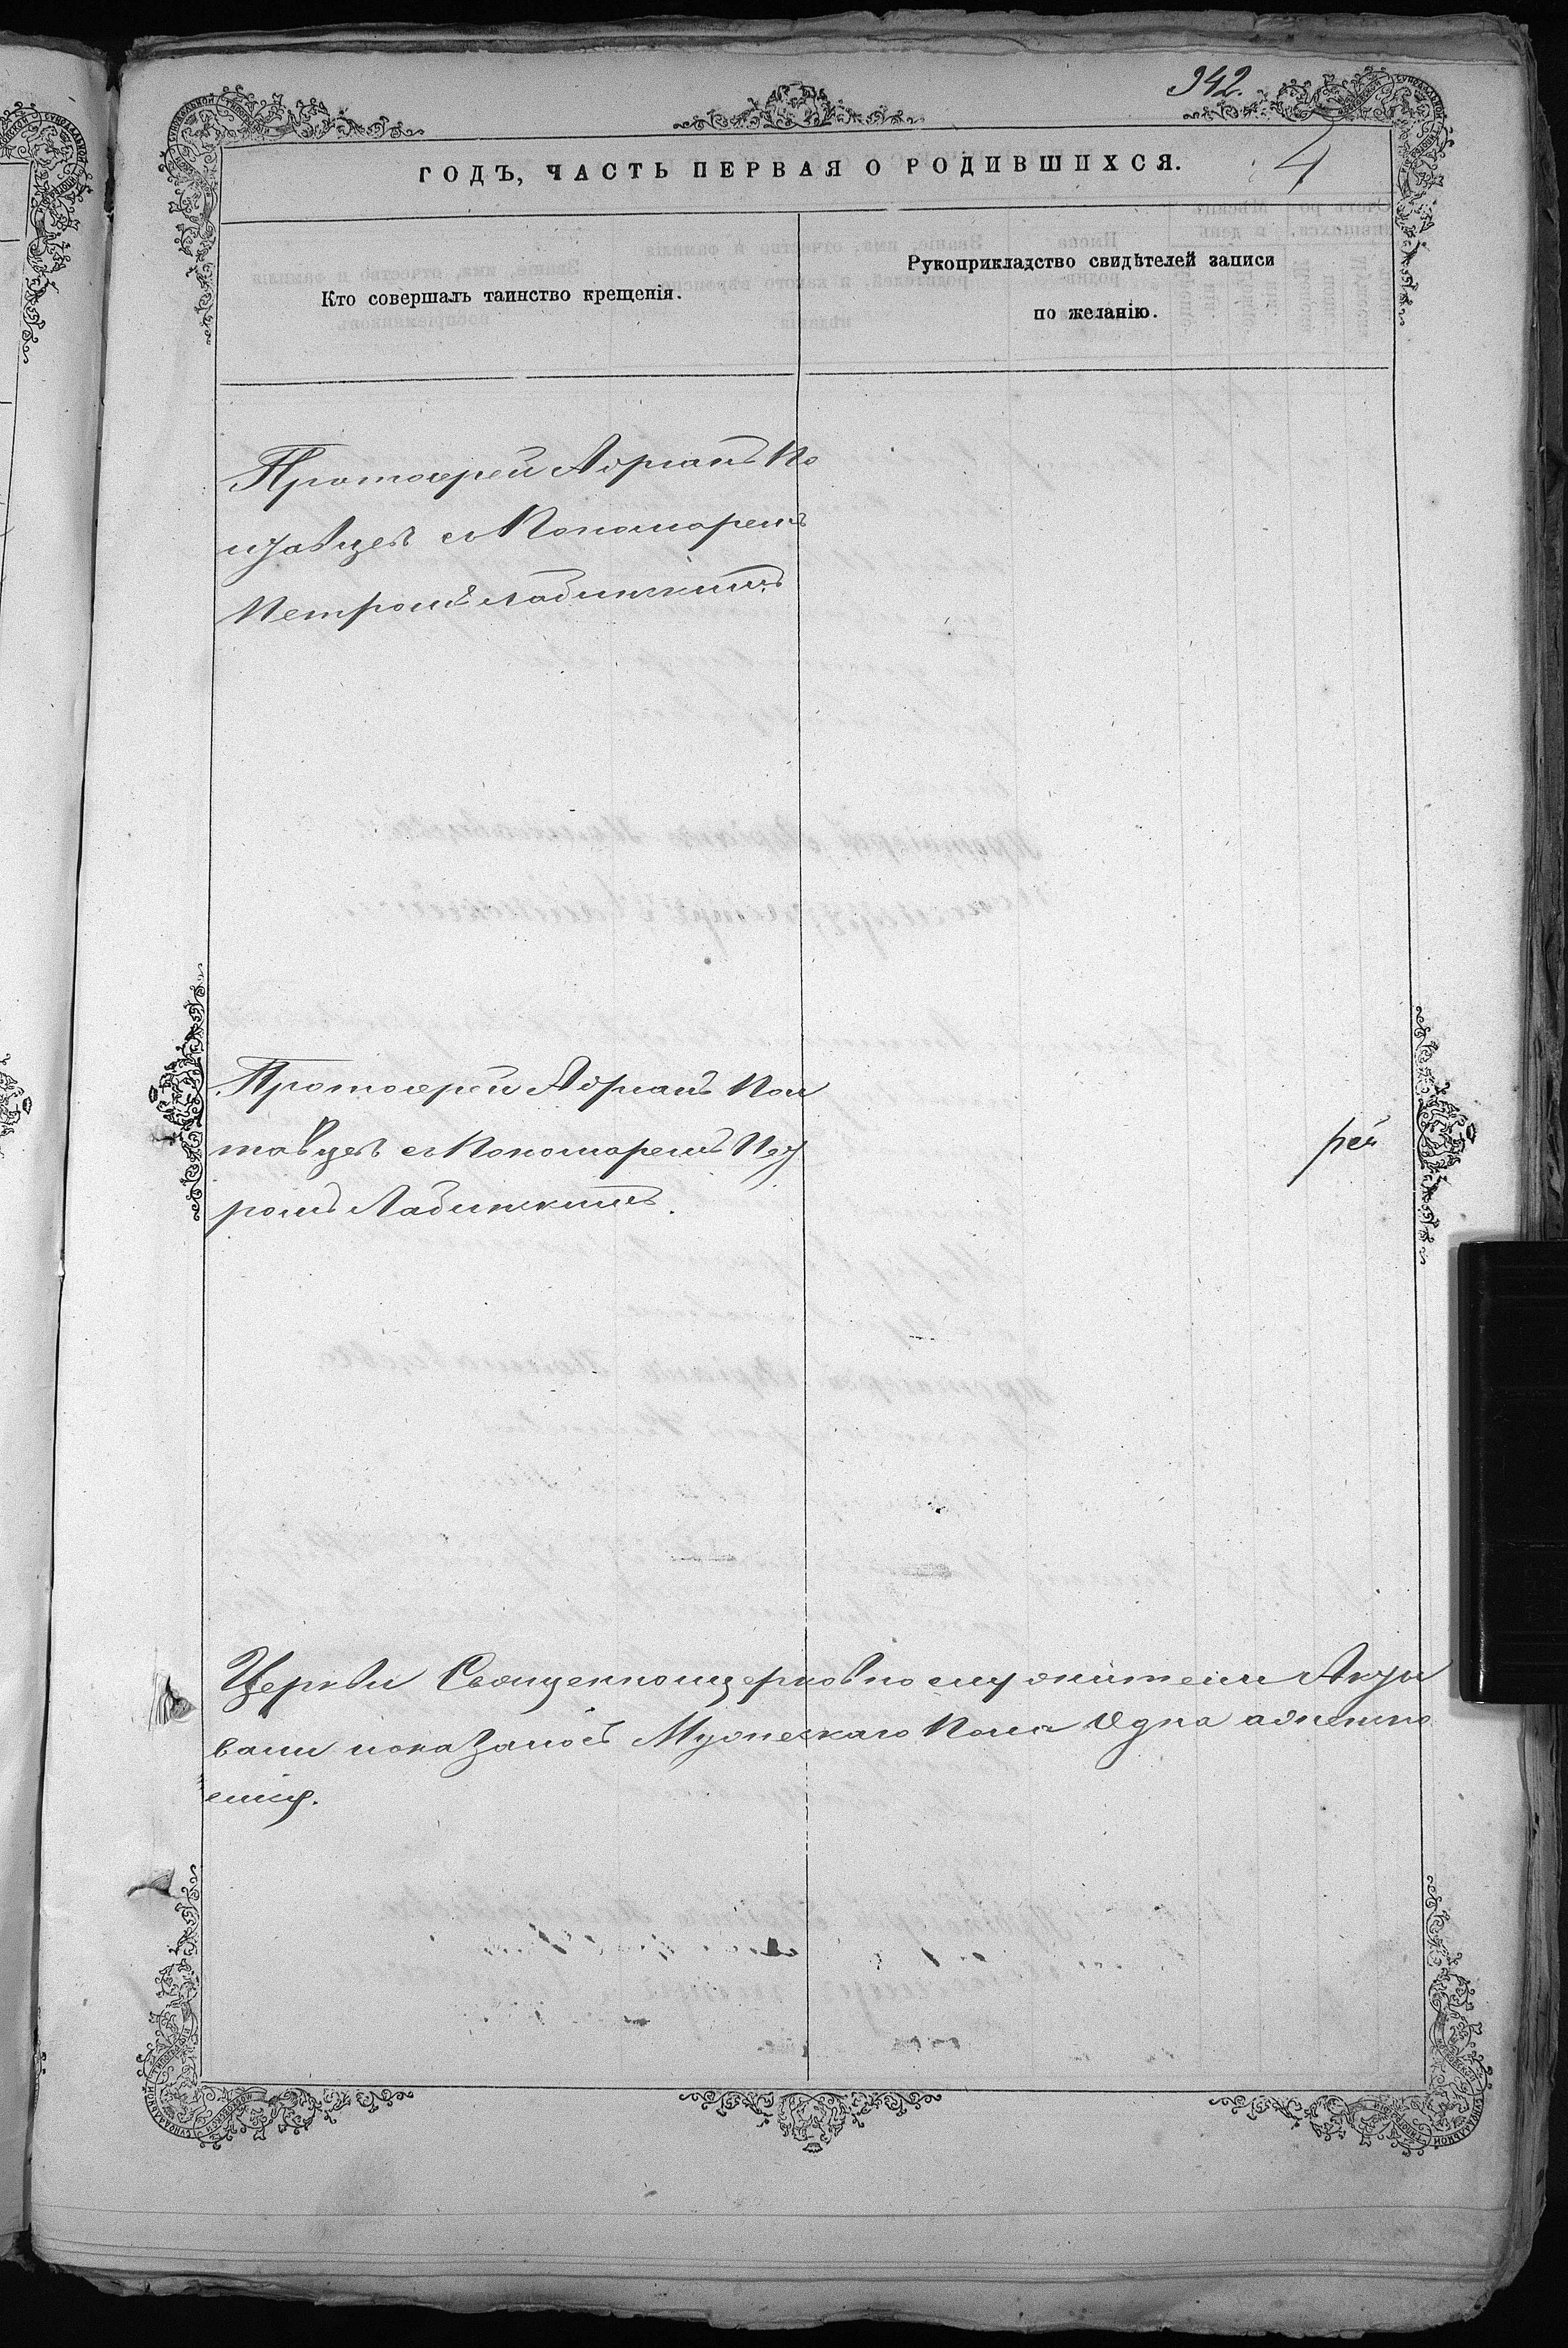 342.
4
ГОДЪ, ЧАСТЬ ПЕРВАЯ О РОДИВШИХСЯ.
Кто совершалъ таинство крещенія.
Рукоприкладство свидѣтелей записи
по желанію.
Протоіерей Адріанъ По
лтавцевъ съ Пономаремъ
Петромъ Лабинскимъ.
Протоіерей Адріанъ Пол
тавцевъ съ Пономаремъ Пет
ромъ Лабинскимъ.
Церкви Священноцерковнослужители
вами показалось Мужескаго Пола Одна